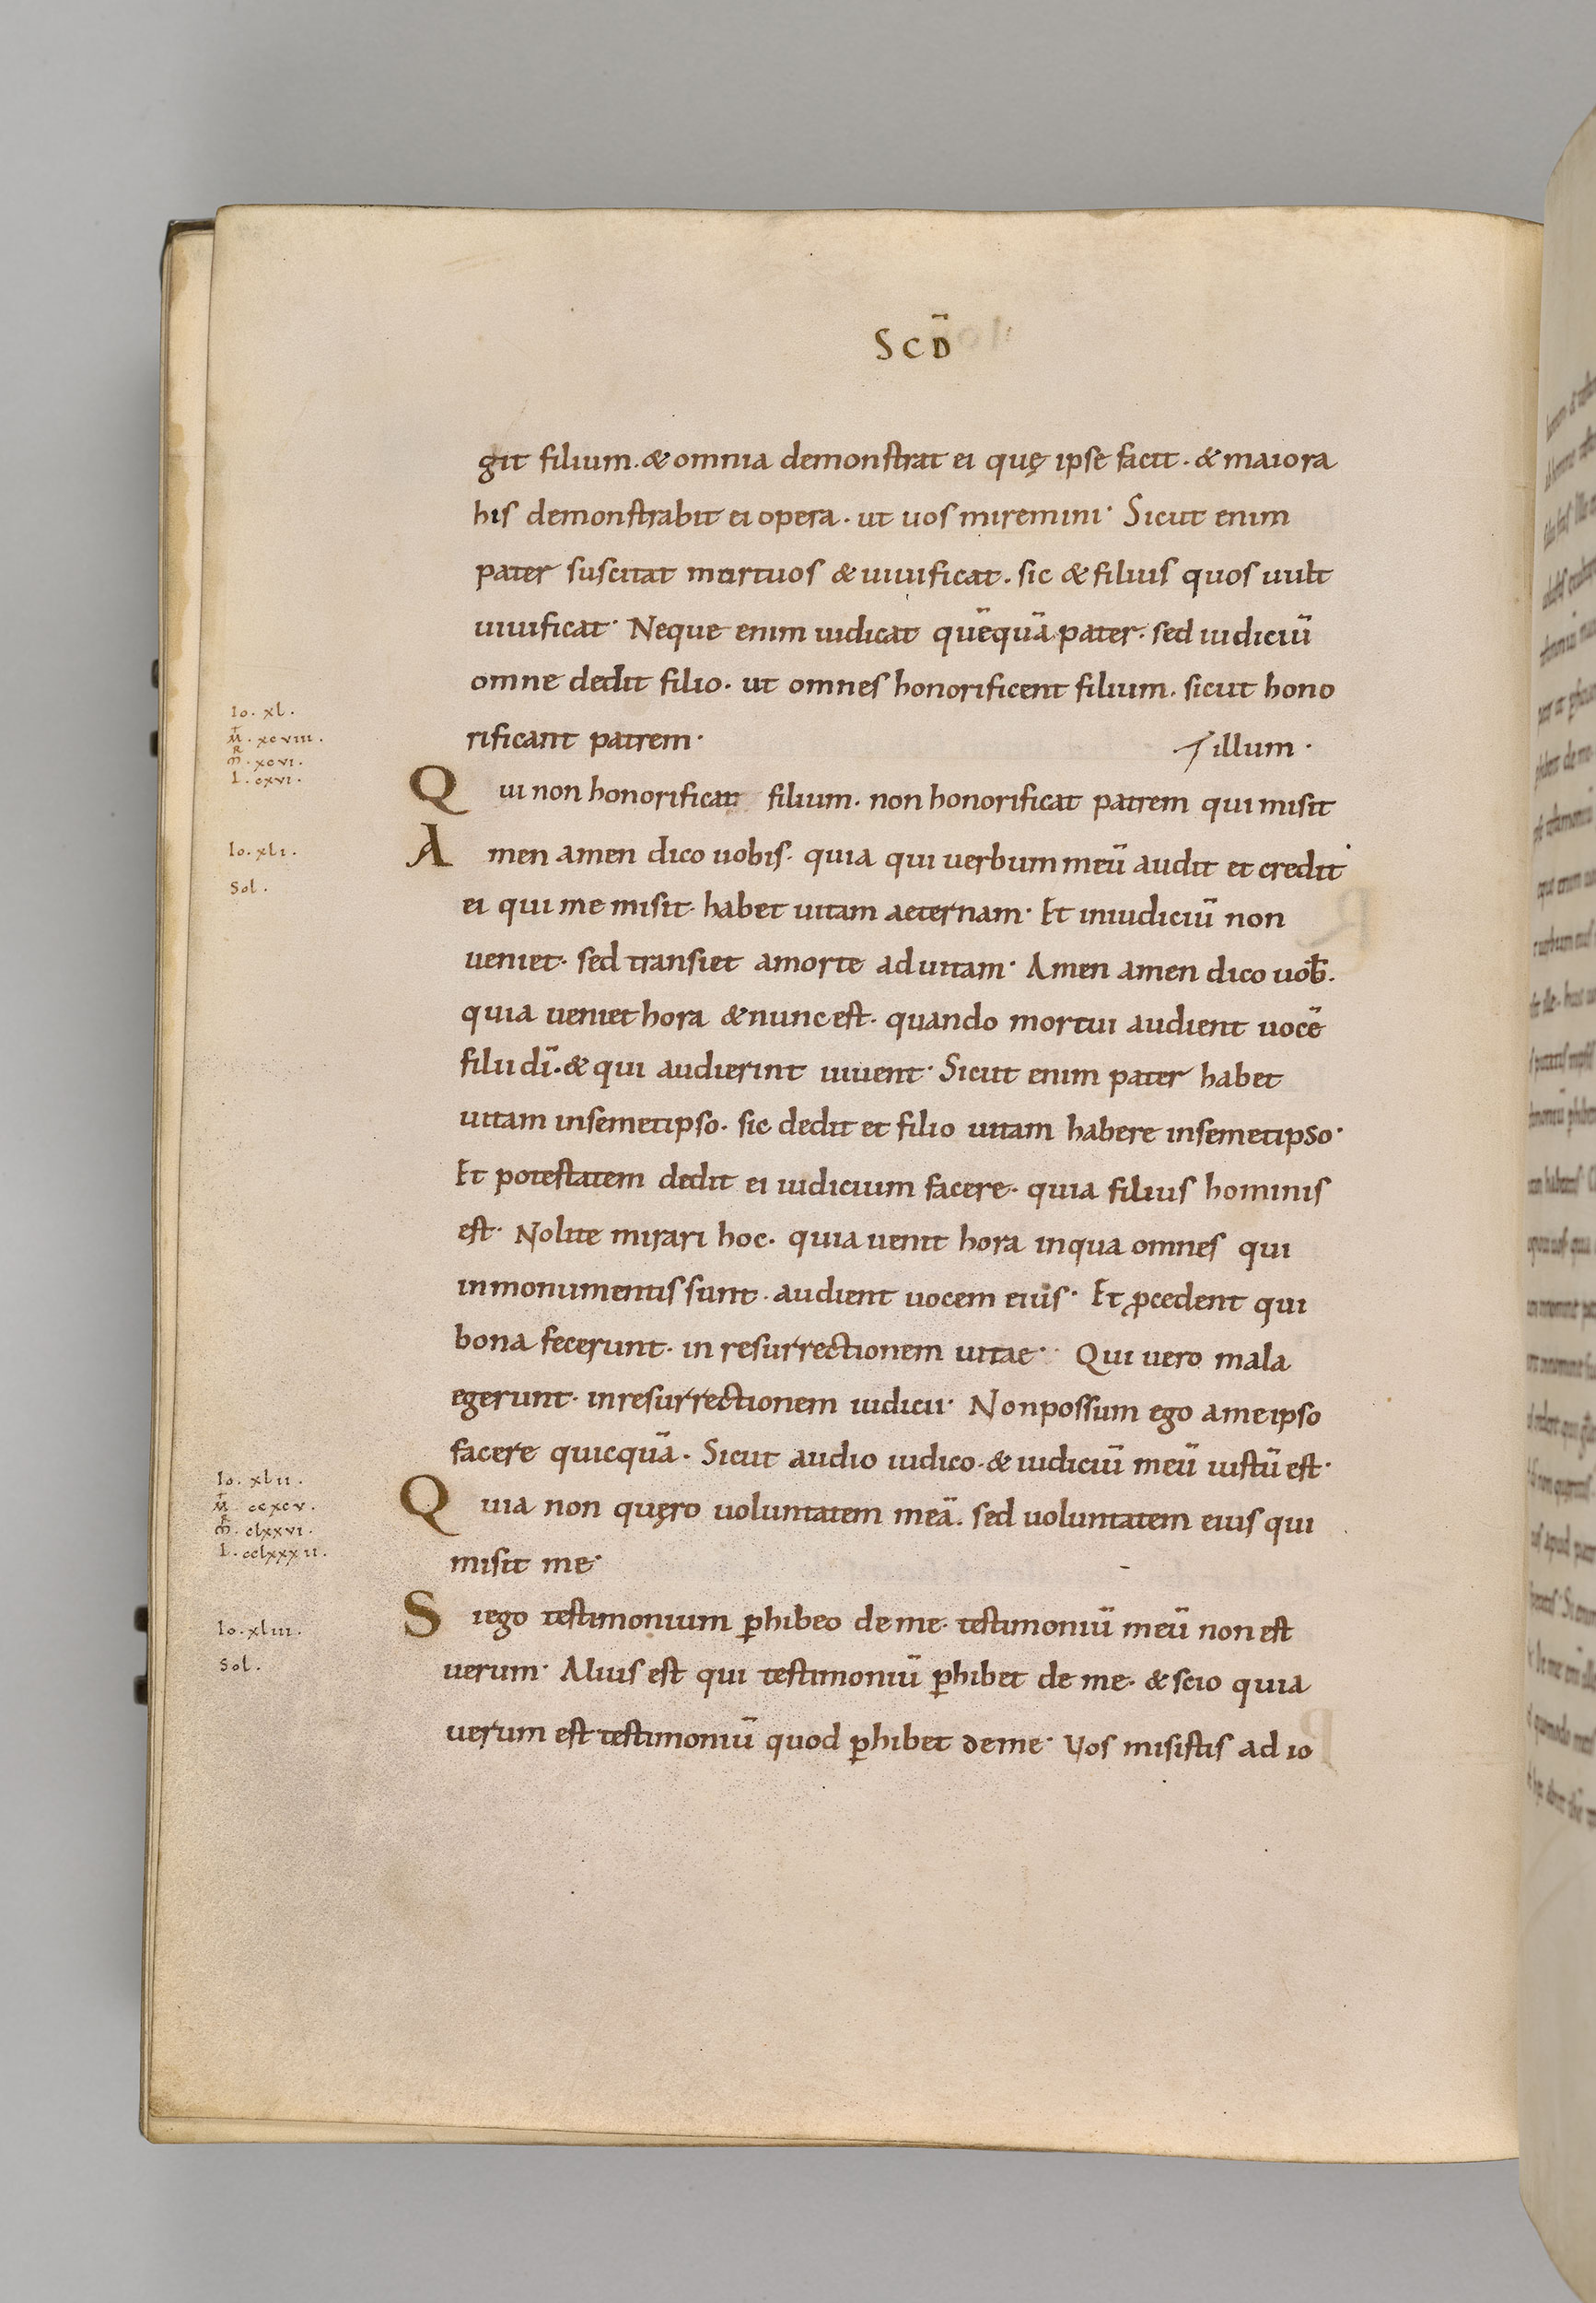 SCD̄
git filium. & omnia demonstrat ei quę ipse facit. & maiora
his demonstrabit ei opera. ut uos miremini· Sicut enim
pater suscitat mortuos & uiuificat. sic & filius quos uult
uiuificat· Neque enim iudicat quēquā pater. sed iudiciū
omne dedit filio. ut omnes honorificent filium. sicut hono
Io. xl.
M̄. xcviii.
m̄. xcvi.
L. cxvi.
rificant patrem· illum.
Qui non honorificat filium. non honorificat patrem qui misit
Io. xli.
Sol.
Amen amen dico uobis. quia qui uerbum meū audit et credit
ei qui me misit. habet uitam aeternam· Et iniudiciū non
ueniet. sed transiet amorte aduitam· Amen amen dico uob̄.
quia ueniet hora & nunc est. quando mortui audient uocē
filii dī. & qui audierint uiuent· Sicut enim pater habet
uitam insemetipso. sic dedit et filio uitam habere insemetipso·
Et potestatem dedit ei iudicium facere. quia filius hominis
est. Nolite mirari hoc. quia uenit hora inqua omnes qui
inmonumentis sunt. audient uocem eius· Et ꝓcedent qui
bona fecerunt. in resurrectionem uitae· Qui uero mala
egerunt. inresurrectionem iudicii· Nonpossum ego ameipso
facere quicquā. Sicut audio iudico. & iudiciū meū iustū est·
Io. xlii.
M̄. ccxcv.
m̄. clxxvi.
L. cclxxxii.
Quia non quęro uoluntatem meā. sed uoluntatem eius qui
misit me·
Io. xliii.
Sol.
Siego testimonium ꝑhibeo deme. testimoniū meū non est
uerum· Alius est qui testimoniū ꝑhibet de me. & scio quia
uerum est testimoniū quod ꝑhibet deme· Vos misistis ad io